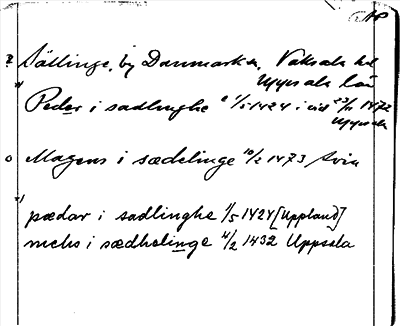 Sällinge, by Danmarks sn, Vaksala hd
Uppsala län
Pedar i sadlinghe 1/5 1424 i vid 23/1 1472
Uppsala
o Magens i sædelinge 10/2 1473 Svin
pædar i sadlinghe 1/5 1424 [Uppland]
niclis i sædhelinge 4/2 1432 Uppsala